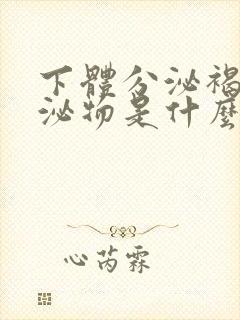 下體分泌褐
泌物是什麼
心芮霖